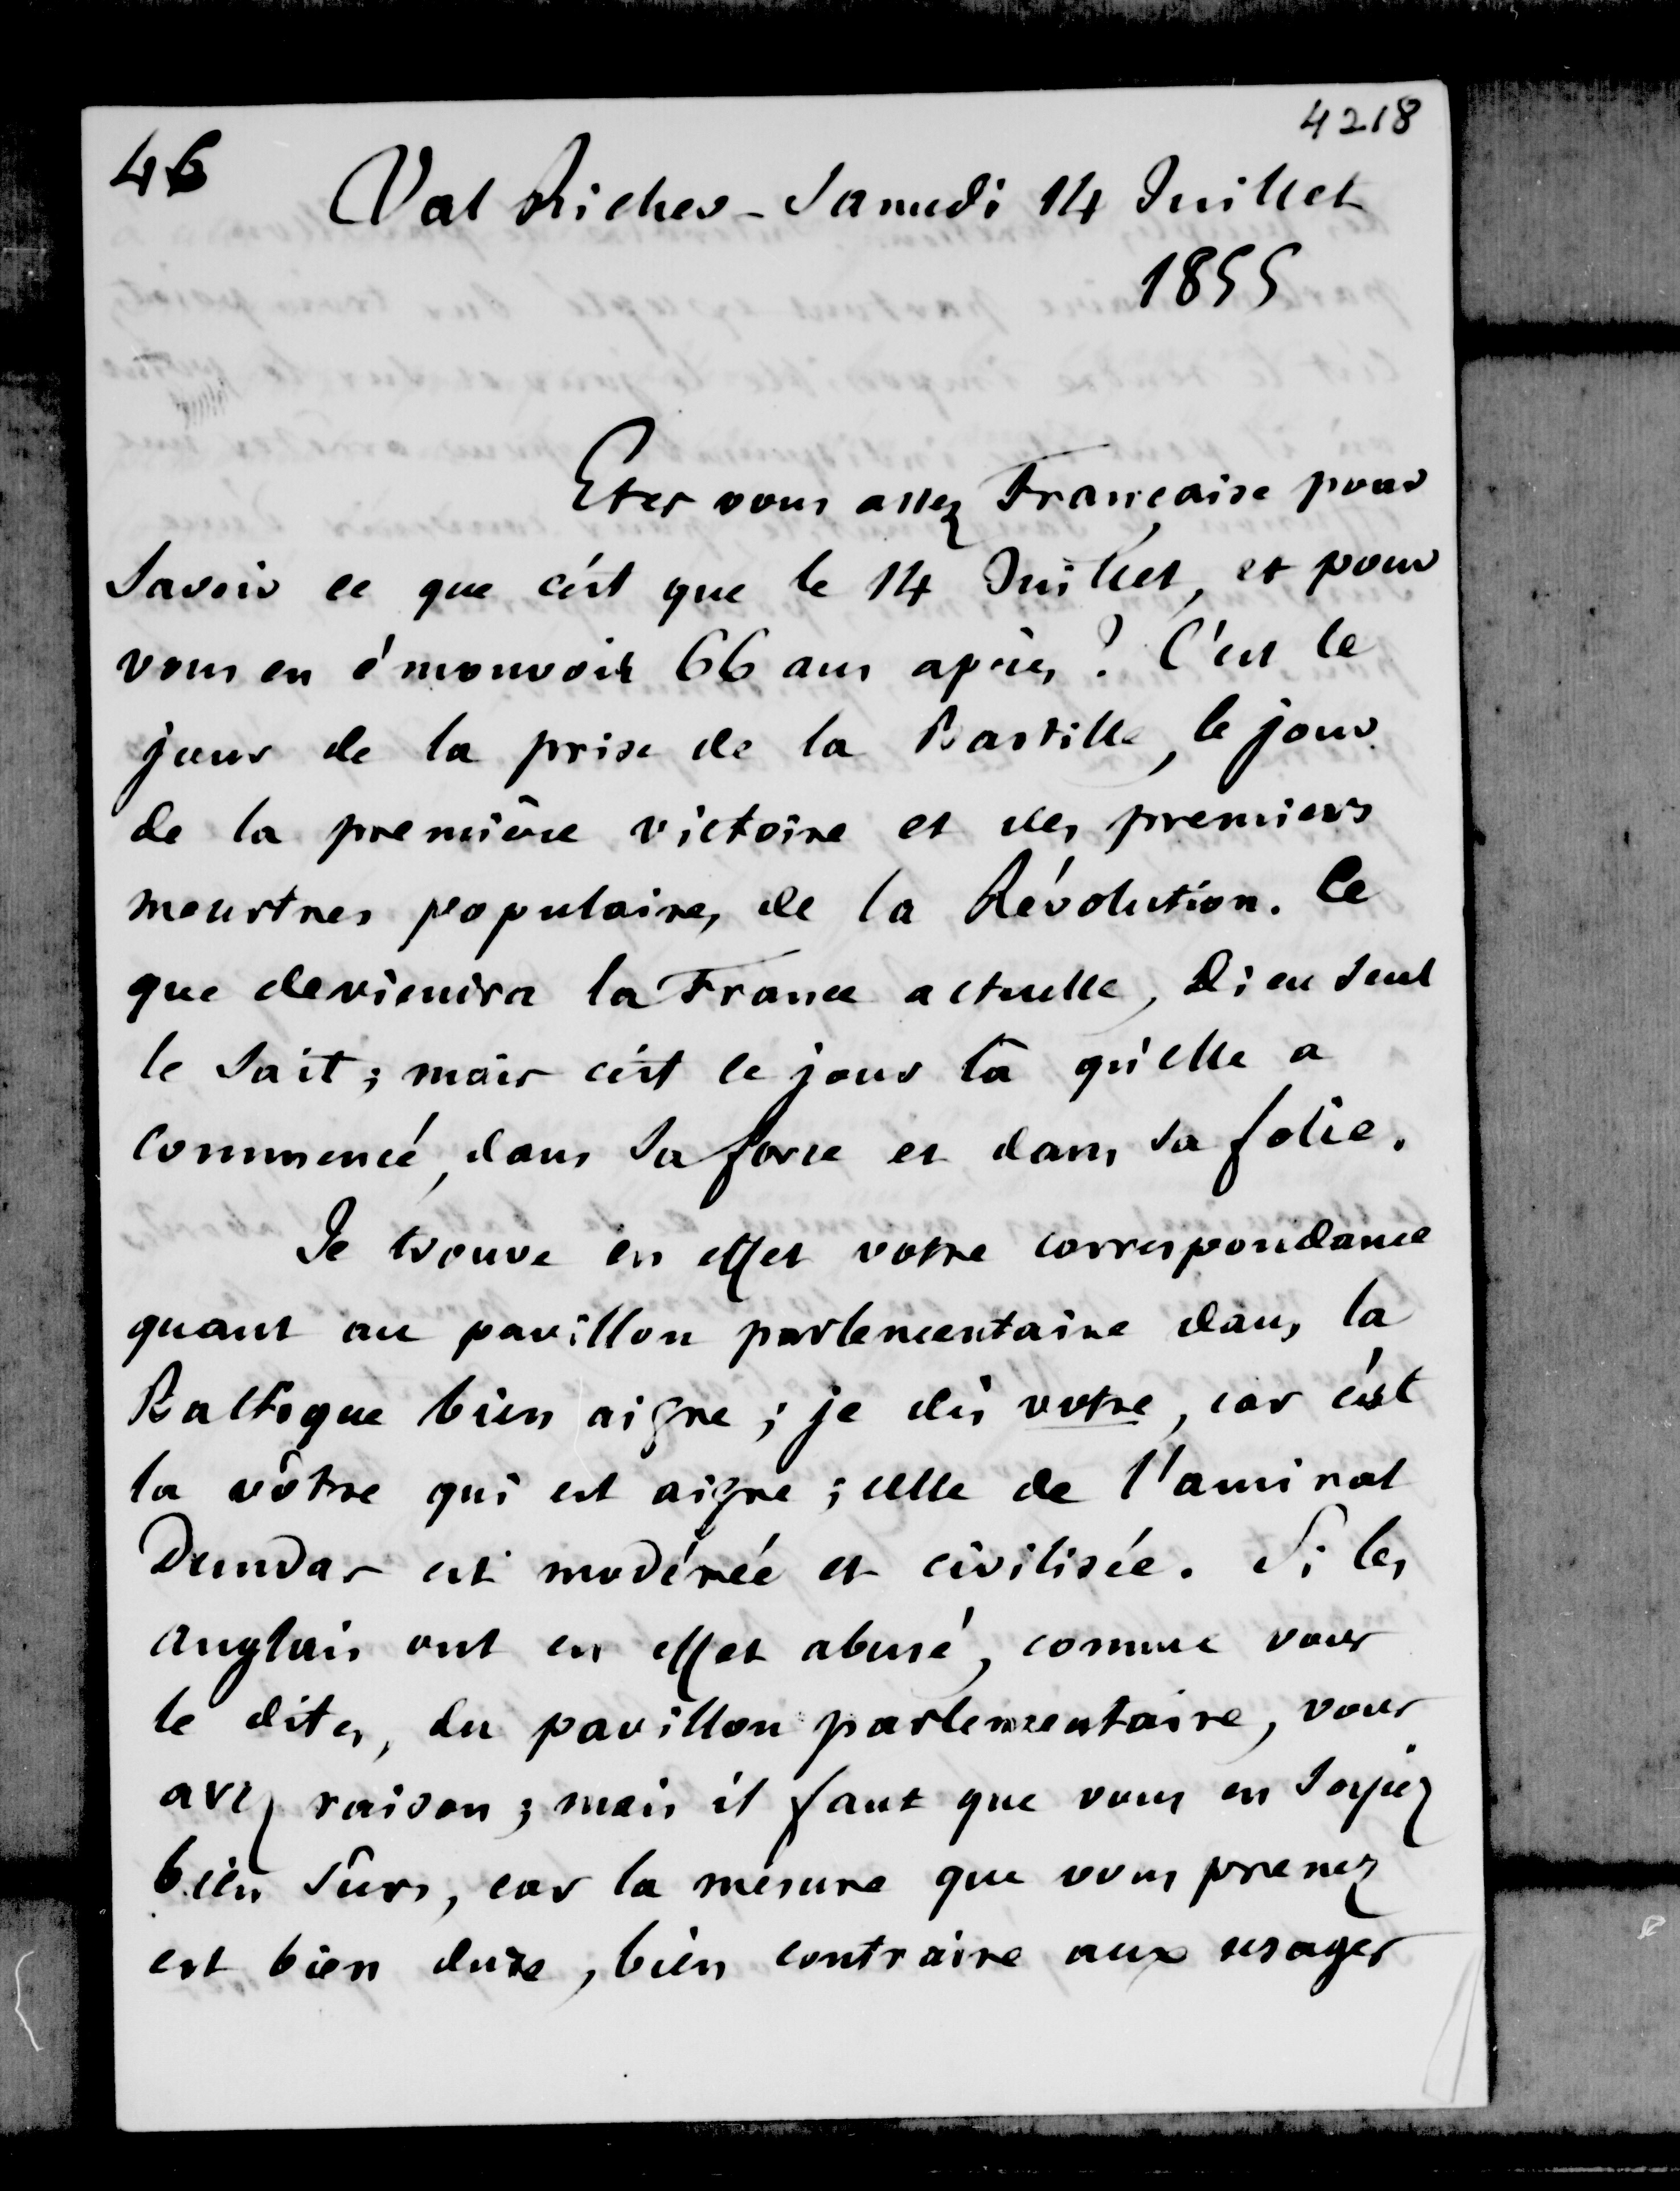 4218
46
Val Richer - Samedi 14 Juillet
1855
Etes vous assez Française pour
savoir ce que c'est que le 14 Juillet, et pour
vous en émouvoir 66 ans après ? C'est le
jour de la prise de la Bastille, le jour
de la première victoire et des premiers
meurtres populaires de la Révolution. Ce
que deviendra la France actuelle, Dieu seul
le sait ; mais c'est ce jour là qu'elle a
commencé, dans sa force et dans sa folie.
Je trouve en effet votre correspondance
quant au pavillon parlementaire dans la
Baltique bien aigre ; je dis votre, car c'est
la vôtre qui est aigre ; celle de l'amiral
Dundas est modérée et civilisée. Si les
anglais ont en effet abusé, comme vous
le dites, du pavillon parlementaire, vous
avez raison ; mais il faut que vous en soyiez
bien sûrs, car la mesure que vous prenez
est bien dure, bien contraire aux usages